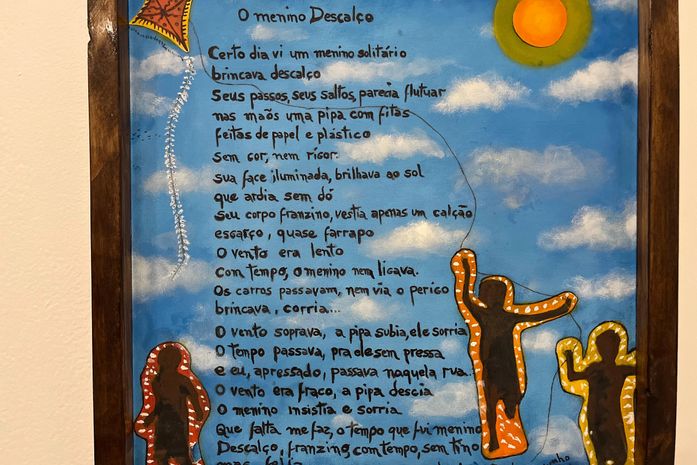 O menino Descalço
Certo dia vi um menino solitário
brincava descalço
Seus passos, seus saltos, parecia flutuar
nas maõs uma pipa com fitas
feitas de papel e plástico
Sem cor, nem rigor.
sua face iluminada, brilhava ao sol
que ardia sem dó
Seu corpo franzino, vestia apenas um calção
esgarço, quase farrapo
O vento era lento
Com tempo, o menino nem ligava.
Os carros passavam, nem via o perigo
brincava, corria...
O vento soprava, a pipa subia, ele sorria
O tempo passava, pra ele sem pressa
e eu, apressado, passava naquela rua...
O vento era fraco, a pipa descia
O menino insistia e sorria.
Que falta me faz, o tempo que fui menino
Descalço, franzino, com tempo, sem tino